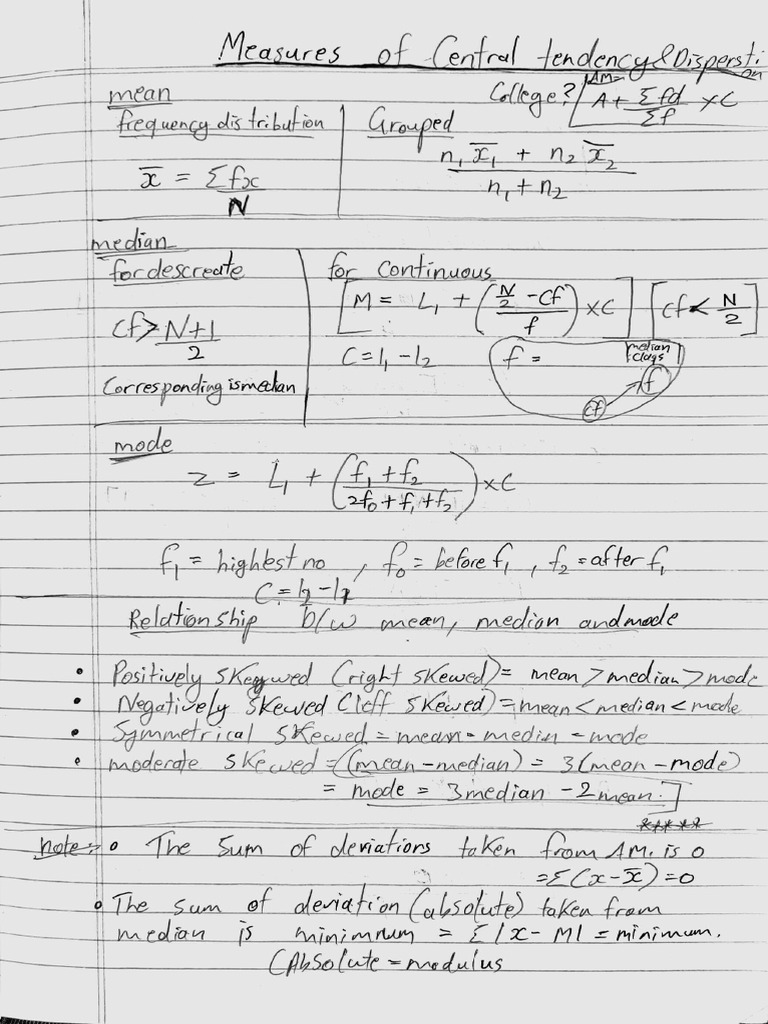 Measures of Central tendency & Dispersti
on
mean
College? AM= A + Σfd/Σf × C
frequency distribution
Grouped
x̄ = Σfx/N
n₁x̄₁ + n₂x̄₂ / n₁ + n₂
median
for descreate
for continuous
cf > N+1/2
[M = L₁ + (N/2 - cf / f) × C] [cf < N/2]
C = l₁ - l₂
f = median class
cf f
Corresponding is median
mode
z = L₁ + (f₁ + f₂ / 2f₀ + f₁ + f₂) × C
f₁ = highest no , f₀ = before f₁ , f₂ = after f₁
C = l₂ - l₁
Relationship b/w mean, median and mode
• Positively skewed (right skewed) = mean > median > mode
• Negatively skewed (left skewed) = mean < median < mode
• Symmetrical skewed = mean = medin = mode
• moderate skewed = (mean - median) = 3(mean - mode)
= mode = 3 median - 2 mean.]
*****
note:- • The sum of deviations taken from AM. is 0
= Σ(x - x̄) = 0
• The sum of deviation (absolute) taken from
median is minimum = Σ|x - M| = minimum.
(Absolute = modulus